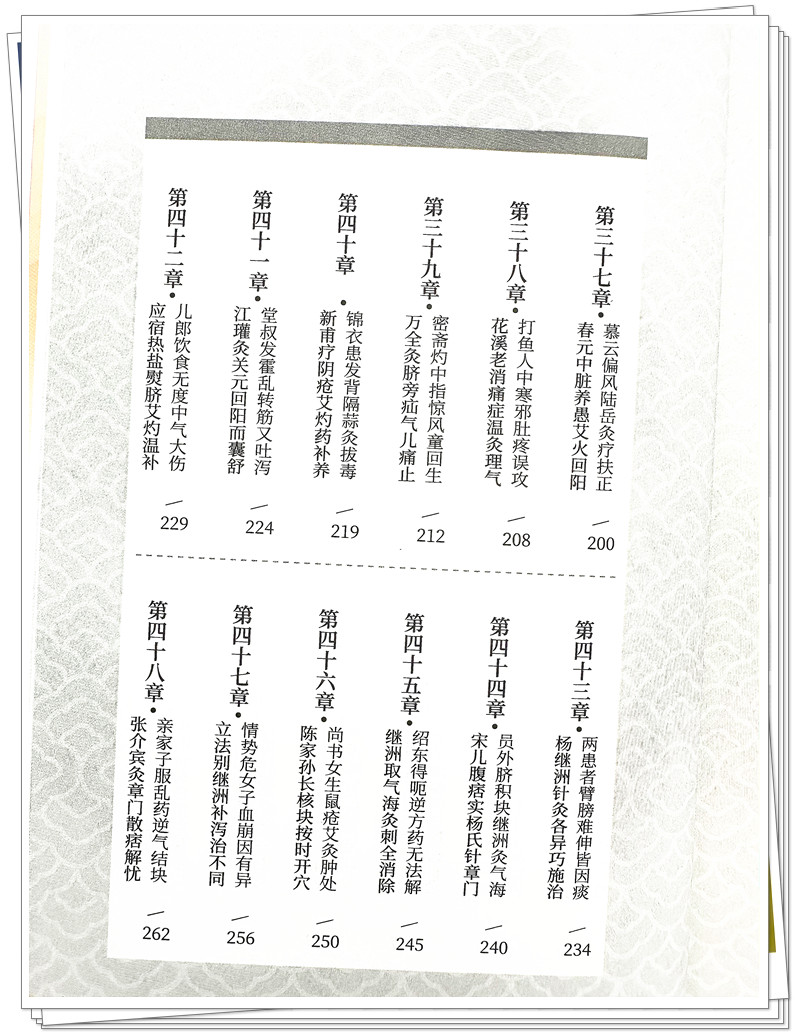 第三十七章
慕云偏风陆岳灸疗扶正
春元中脏养愚艾火回阳
200
第三十八章
打鱼人中寒邪肚疼误攻
花溪老消痛症温灸理气
208
第三十九章
密斋灼中指惊风童回生
万全灸脐旁疝气儿痛止
212
第四十章
锦衣患发背隔蒜灸拔毒
新甫疗阴疮艾灼药补养
219
第四十一章
堂叔发霍乱转筋又吐泻
江瓘灸关元回阳而囊舒
224
第四十二章
儿郎饮食无度中气大伤
应宿热盐熨脐艾灼温补
229
第四十三章
两患者臂膀难伸皆因痰
杨继洲针灸各异巧施治
234
第四十四章
员外脐积块继洲灸气海
宋儿腹痞实杨氏针章门
240
第四十五章
绍东得呃逆方药无法解
继洲取气海灸刺全消除
245
第四十六章
尚书女生鼠疮艾灸肿处
陈家孙长核块按时开穴
250
第四十七章
情势危女子血崩因有异
立法别继洲补泻治不同
256
第四十八章
亲家子服乱药逆气结块
张介宾灸章门散痞解忧
262